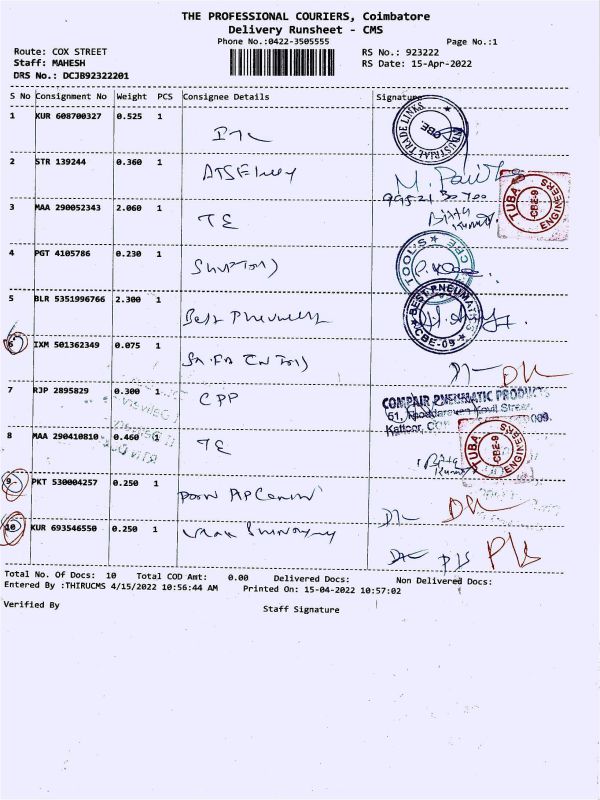 THE PROFESSIONAL COURIERS, Coimbatore
Delivery Runsheet - CMS
Phone No.:0422-3505555 Page No.:1
Route: COX STREET RS No.: 923222
Staff: MAHESH RS Date: 15-Apr-2022
DRS No.: DCJB92322201
S No Consignment No Weight PCS Consignee Details Signature
1 KUR 608700327 0.525 1
INDUSTRIAL TRADE LINKS CBE.
2 STR 139244 0.360 1
TUBA ENGINEERS CBE-9
3 MAA 290052343 2.060 1
TE
4 PGT 4105786 0.230 1
TOOLS
5 BLR 5351996766 2.300 1
Best Pneumatics BEST PNEUMATICS CBE-09
6 IXM 501362349 0.075 1
7 RJP 2895829 0.300 1
CPP COMPAIR PNEUMATIC PRODUCTS
51, Kovil Street,
Kattoor,
8 MAA 290410810 0.460 1
TE TUBA ENGINEERS CBE-9
9 PKT 530004257 0.250 1
10 KUR 693546550 0.250 1
P/S P/S
Total No. Of Docs: 10 Total COD Amt: 0.00 Delivered Docs: Non Delivered Docs:
Entered By :THIRUCMS 4/15/2022 10:56:44 AM Printed On: 15-04-2022 10:57:02
Verified By Staff Signature